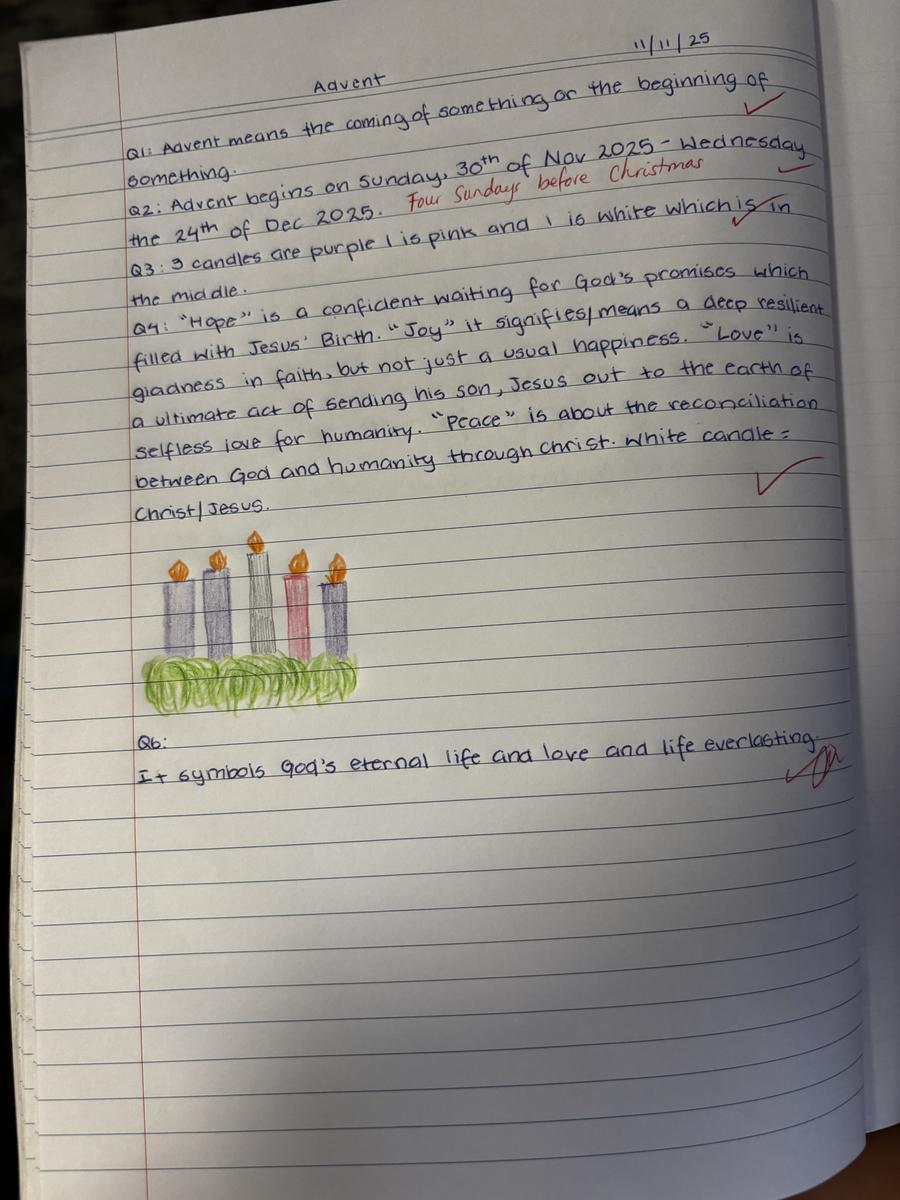 11/11/25
Advent
Q1: Advent means the coming of something or the beginning of
something.
Q2: Advent begins on Sunday, 30th of Nov 2025 - Wednesday
the 24th of Dec 2025. Four Sundays before Christmas
Q3: 3 candles are purple 1 is pink and 1 is white which is in
the middle.
Q4: "Hope" is a confident waiting for God's promises which
filled with Jesus' Birth. "Joy" it signifies/means a deep resilient
gladness in faith, but not just a usual happiness. "Love" is
a ultimate act of sending his son, Jesus out to the earth of
selfless love for humanity. "Peace" is about the reconciliation
between God and humanity through Christ. White candle =
Christ/Jesus.
Q6:
It symbols God's eternal life and love and life everlasting.